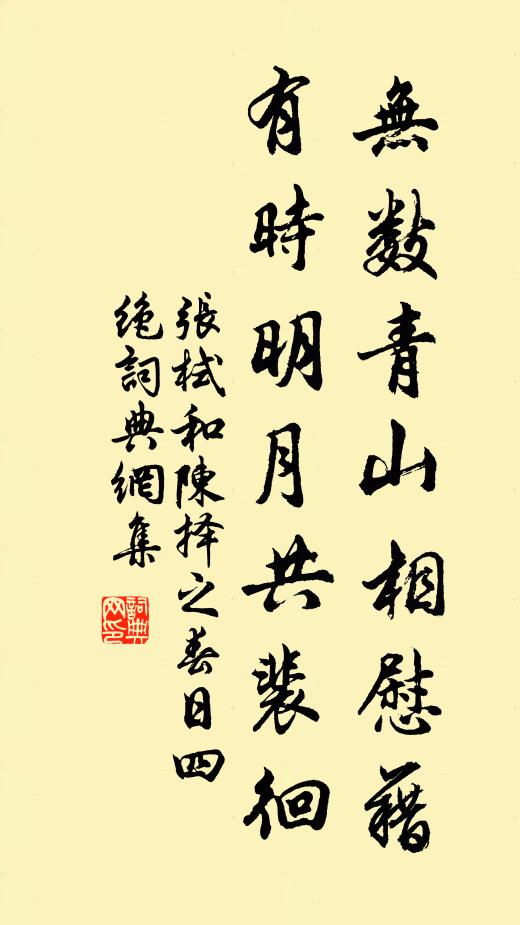 無數青山相慰藉
有時明月共裴徊
張栻和陳择之春日四
絶詞典網集
詞典
网印